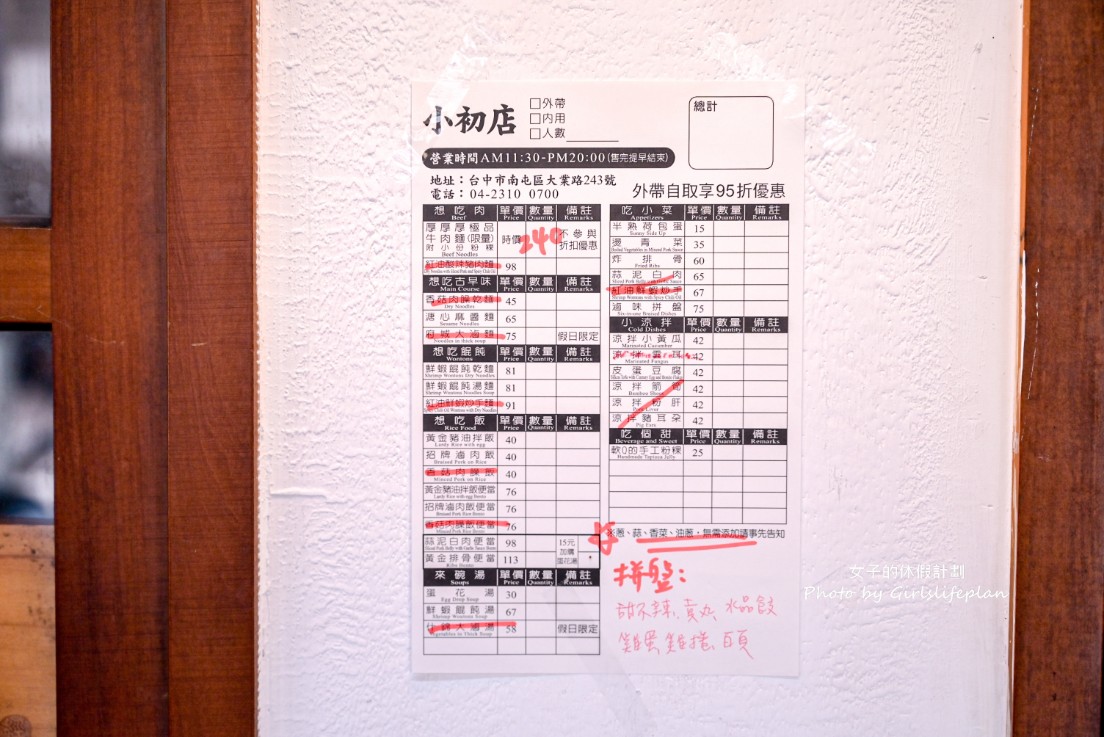 小初店
□外帶
□內用
□人數
總計
營業時間AM11:30-PM20:00(售完提早結束)
地址：台中市南屯區大業路243號
電話：04-2310 0700
外帶自取享95折優惠
想吃肉 Beef 單價 Price 數量 Quantity 備註 Remarks
厚厚厚極品
牛肉麵(限量) 時價 240 不參與
附小份粉粿 折扣優惠
Beef Noodles
紅油酸辣豬肉麵 98
想吃古早味 Main Course 單價 Price 數量 Quantity 備註 Remarks
香菇肉臊乾麵 45
Dry Noodles
溏心麻醬麵 65
Sesame Noodles
府城大滷麵 75 假日限定
Noodles in thick soup
想吃餛飩 Wontons 單價 Price 數量 Quantity 備註 Remarks
鮮蝦餛飩乾麵 81
Shrimp Wontons Dry Noodles
鮮蝦餛飩湯麵 81
Shrimp Wontons Noodles Soup
紅油鮮蝦炒手麵 91
想吃飯 Rice Food 單價 Price 數量 Quantity 備註 Remarks
黃金豬油拌飯 40
Lardy Rice with egg
招牌滷肉飯 40
Braised Pork on Rice
香菇肉臊飯 40
Minced Pork on Rice
黃金豬油拌飯便當 76
招牌滷肉飯便當 76
香菇肉臊飯便當 76
蒜泥白肉便當 98 15元
加購
蛋花湯
黃金排骨便當 113
來碗湯 Soups 單價 Price 數量 Quantity 備註 Remarks
蛋花湯 30
Egg Drop Soup
鮮蝦餛飩湯 67
Shrimp Wontons Soup
什錦大滷湯 58 假日限定
Vegetables in Thick Soup
吃小菜 Appetizers 單價 Price 數量 Quantity 備註 Remarks
半熟荷包蛋 15
Sunny Side Up
燙青菜 35
炸排骨 60
Fried Ribs
蒜泥白肉 65
紅油鮮蝦炒手 67
滷味拼盤 75
小涼拌 Cold Dishes 單價 Price 數量 Quantity 備註 Remarks
涼拌小黃瓜 42
Marinated Cucumber
涼拌雲耳 42
Marinated Fungus
皮蛋豆腐 42
涼拌箭筍 42
Bamboo Shoot
涼拌粉肝 42
Pork Liver
涼拌豬耳朵 42
Pig Ears
吃個甜 Beverage and Sweet 單價 Price 數量 Quantity 備註 Remarks
軟Q的手工粉粿 25
Handmade Tapioca Jelly
※蔥、蒜、香菜、油蔥，無需添加請事先告知
拼盤：
甜不辣、素丸、水晶餃
雞蛋雞捲、百頁
女子的休假計劃
Photo by Girlslifeplan